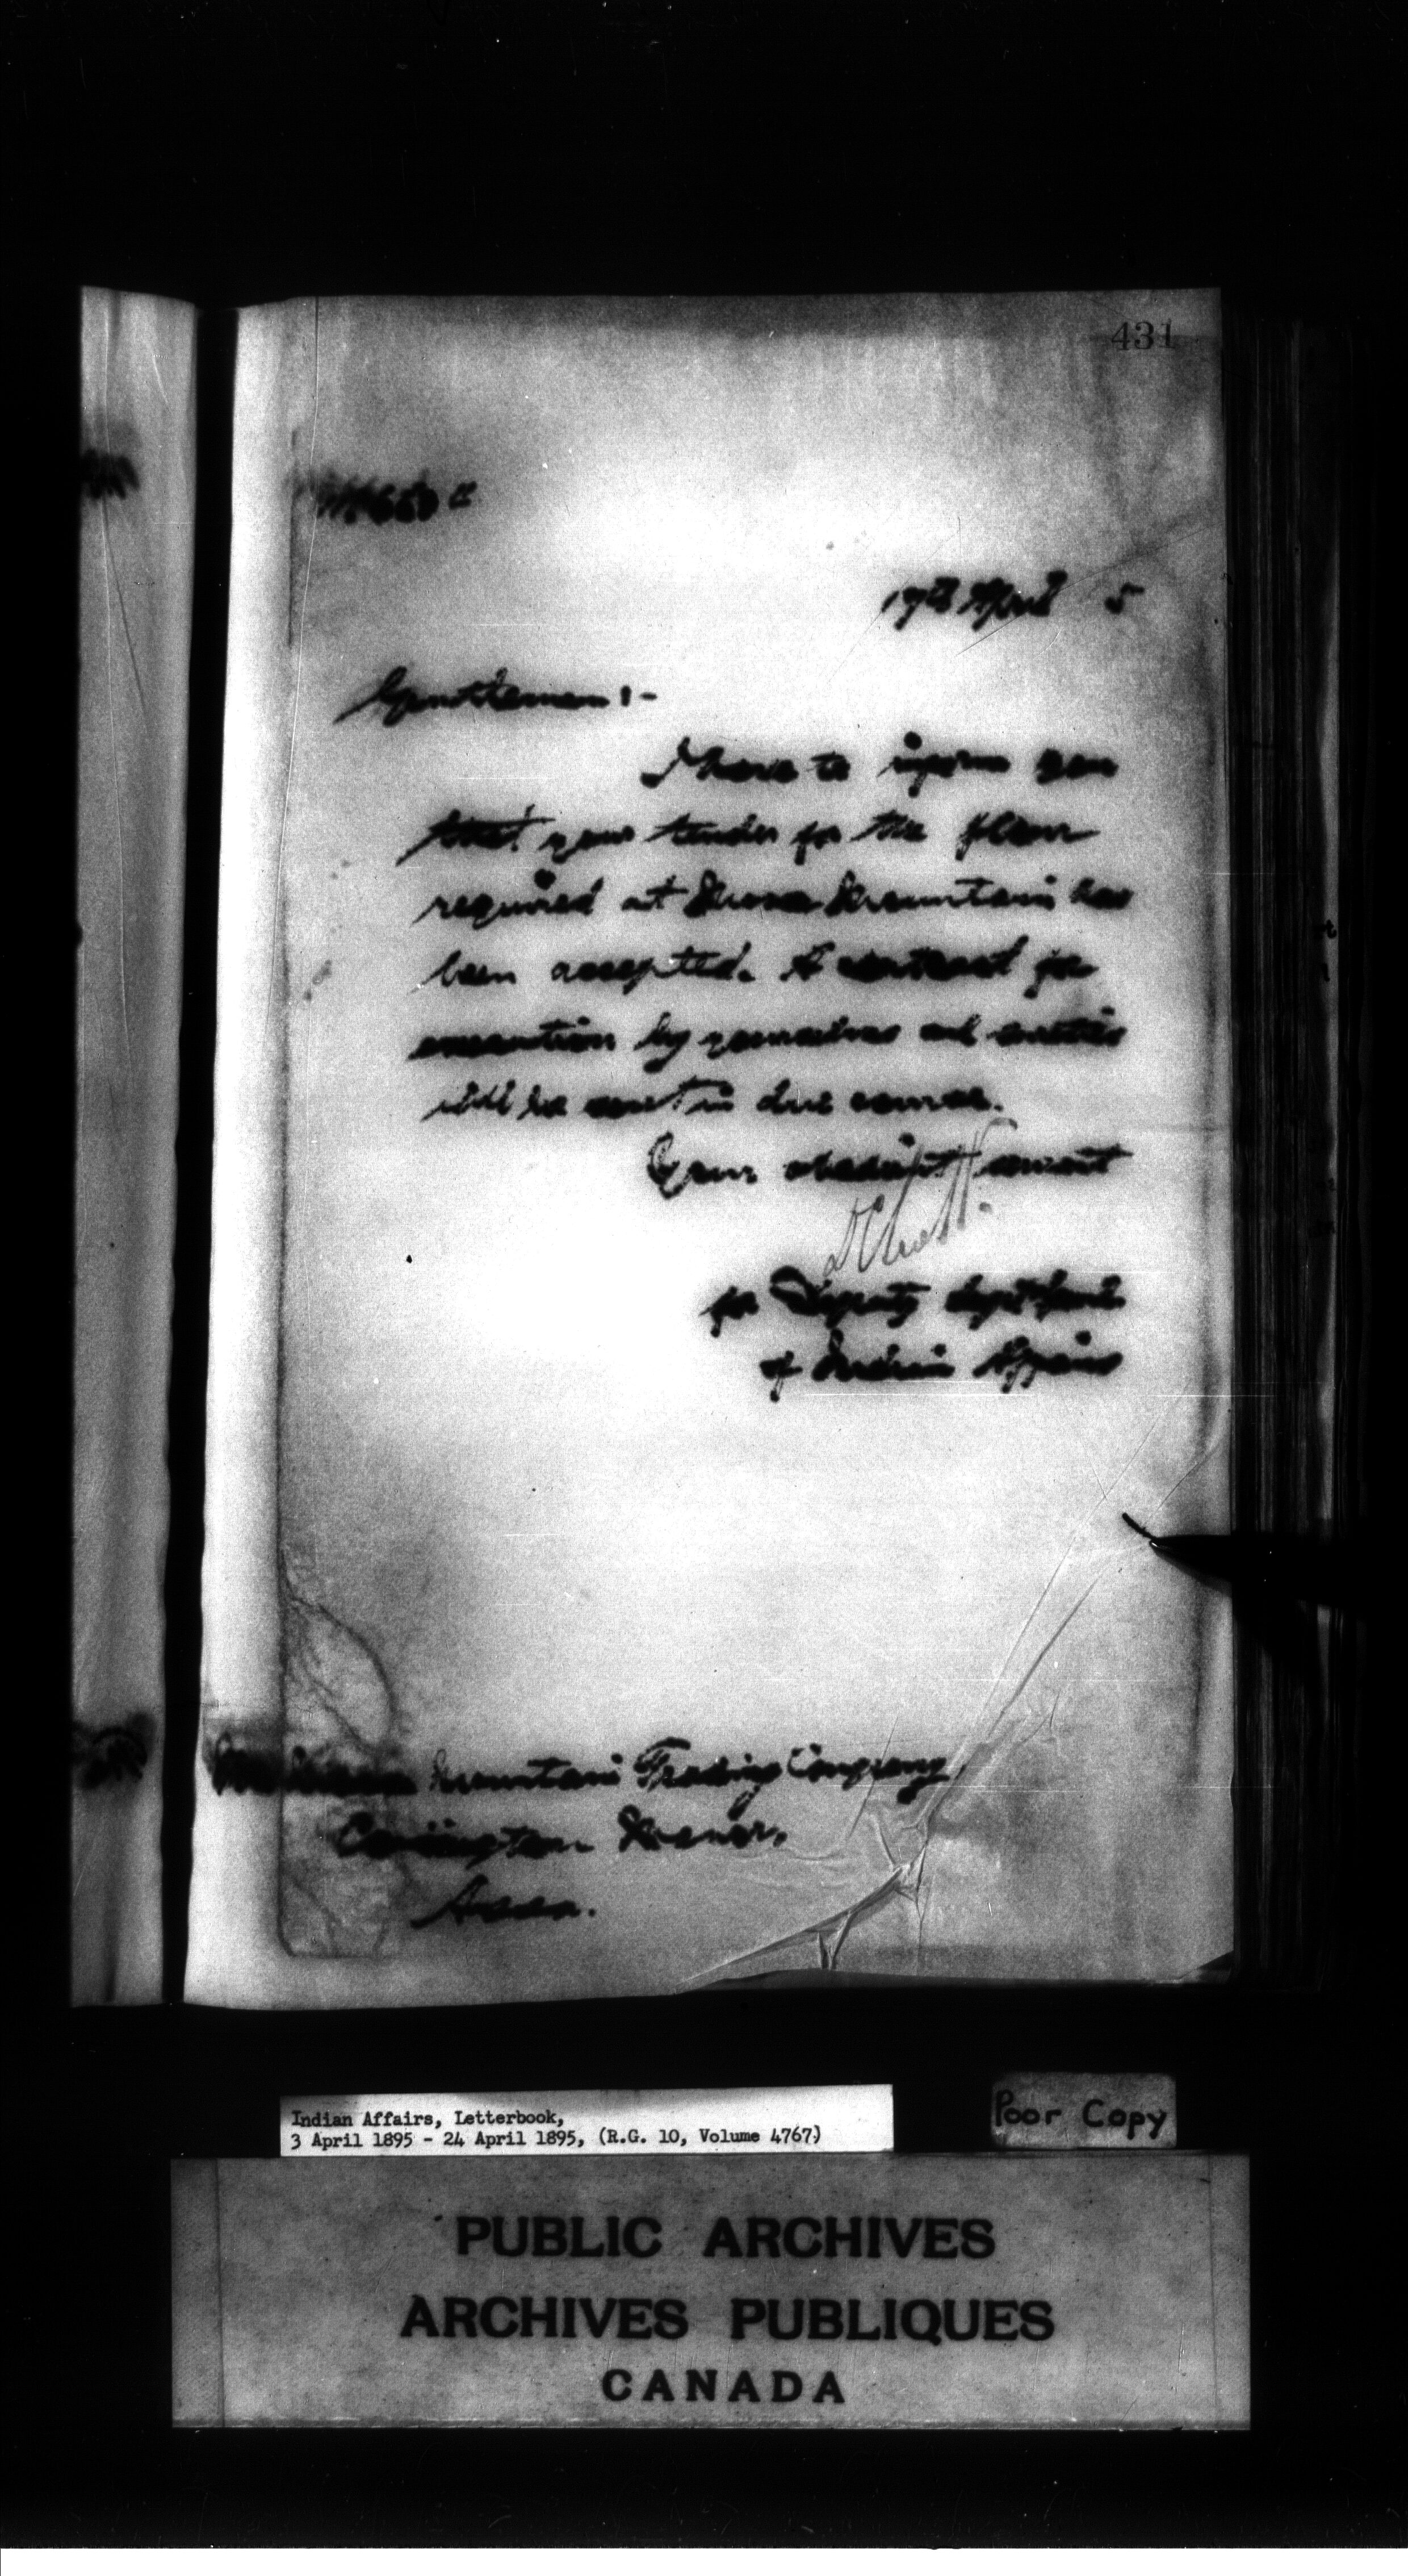 431
17th April 5
Gentlemen:-
I have to inform you
that your tender for the flour
required at Moose Mountain has
been accepted. A contract for
execution by yourselves and sureties
will be sent in due course.
Your obedient servant
for Deputy Supt Genl.
of Indian Affairs
Mountain Trading Company,
Cannington Manor,
Assa.
Indian Affairs, Letterbook,
3 April 1895 - 24 April 1895, (R.G. 10, Volume 4767)
Poor Copy
PUBLIC ARCHIVES
ARCHIVES PUBLIQUES
CANADA